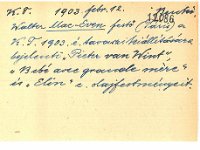 K.T. 1903. febr. 12.
12086
Walter Mac-Ewen festő (Páris) a
K.T. 1903. i tavaszi kiállítására
bejelenti „Pieter van Wint",
„Bébé avec grande mère"
és „Elin" c. olajfestményeit.